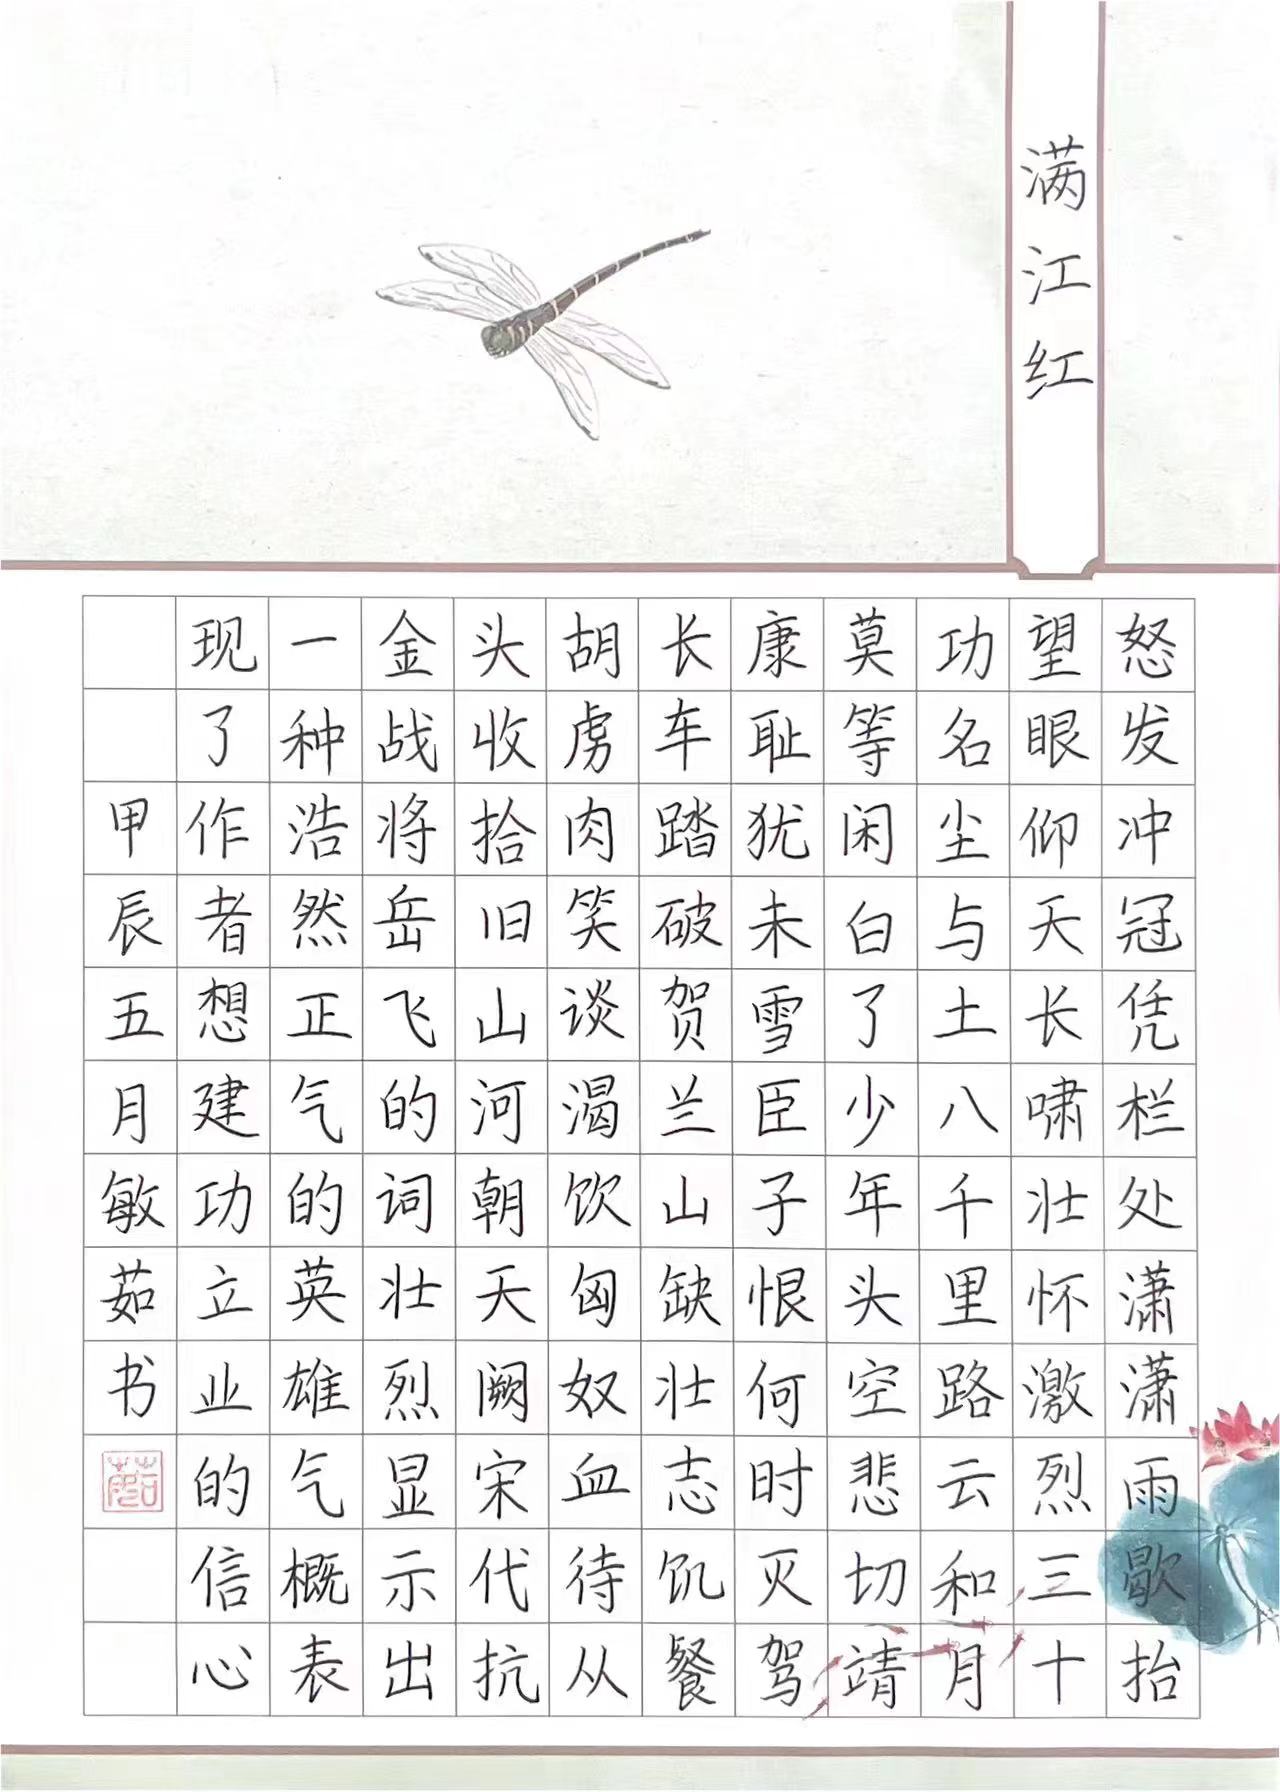 满江红
怒发冲冠凭栏处潇潇雨歇抬
望眼仰天长啸壮怀激烈三十
功名尘与土八千里路云和月
莫等闲白了少年头空悲切靖
康耻犹未雪臣子恨何时灭驾
长车踏破贺兰山缺壮志饥餐
胡虏肉笑谈渴饮匈奴血待从
头收拾旧山河朝天阙宋代抗
金战将岳飞的词壮烈显示出
一种浩然正气的英雄气概表
现了作者想建功立业的信心
甲辰五月敏茹书